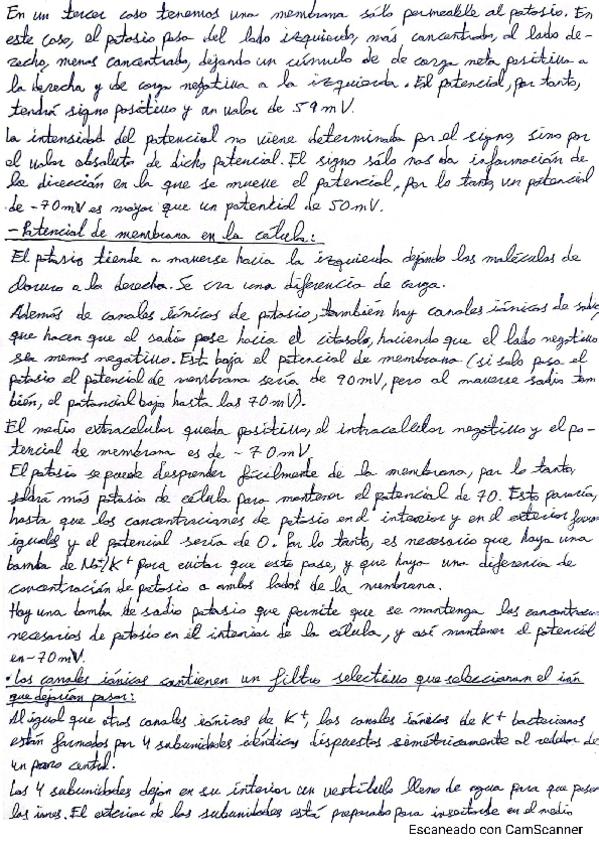 En un tercer caso tenemos una membrana sólo permeable al potasio. En
este caso, el potasio pasa del lado izquierdo, más concentrado, al lado de-
recho, menos concentrado, dejando un cúmulo de de carga neta positiva a
la derecha y de carga negativa a la izquierda. El potencial, por tanto,
tendrá signo positivo y un valor de 59 mV.
La intensidad del potencial no viene determinada por el signo, sino por
el valor absoluto de dicho potencial. El signo sólo nos da información de
la dirección en la que se mueve el potencial, por lo tanto, un potencial
de -70mV es mayor que un potencial de 50mV.
- Potencial de membrana en la célula:
El potasio tiende a moverse hacia la izquierda dejando las moléculas de
cloruro a la derecha. Se crea una diferencia de carga.
Además de canales iónicos de potasio, también hay canales iónicos de sodio,
que hacen que el sodio pase hacia el citosol, haciendo que el lado negativo
sea menos negativo. Esto baja el potencial de membrana (si solo pasa el
potasio el potencial de membrana sería de 90mV, pero al moverse sodio tam
bién, el potencial baja hasta los 70mV).
El medio extracelular queda positivo, el intracelular negativo y el po-
tencial de membrana es de -70mV
El potasio se puede desprender fácilmente de la membrana, por lo tanto,
saldrá más potasio de célula para mantener el potencial de 70. Esto pasaría,
hasta que las concentraciones de potasio en el interior y en el exterior fueran
iguales y el potencial sería de 0. Por lo tanto, es necesario que haya una
bomba de Na+/K+ para evitar que esto pase, y que haya una diferencia de
concentración de potasio a ambos lados de la membrana.
Hay una bomba de sodio potasio que permite que se mantenga las
necesarias de potasio en el interior de la célula, y así mantener el potencial
en -70mV.
• Los canales iónicos contienen un filtro selectivo que seleccionan el ión
que dejarían pasar:
Al igual que otros canales iónicos de K+, los canales iónicos de K+ bacterianos
están formados por 4 subunidades idénticas dispuestas simétricamente al rededor de
un poro central.
Las 4 subunidades dejan en su interior un vestíbulo lleno de agua para que pasen
los iones. El exterior de las subunidades está preparado para insertarse en el medio
Escaneado con CamScanner